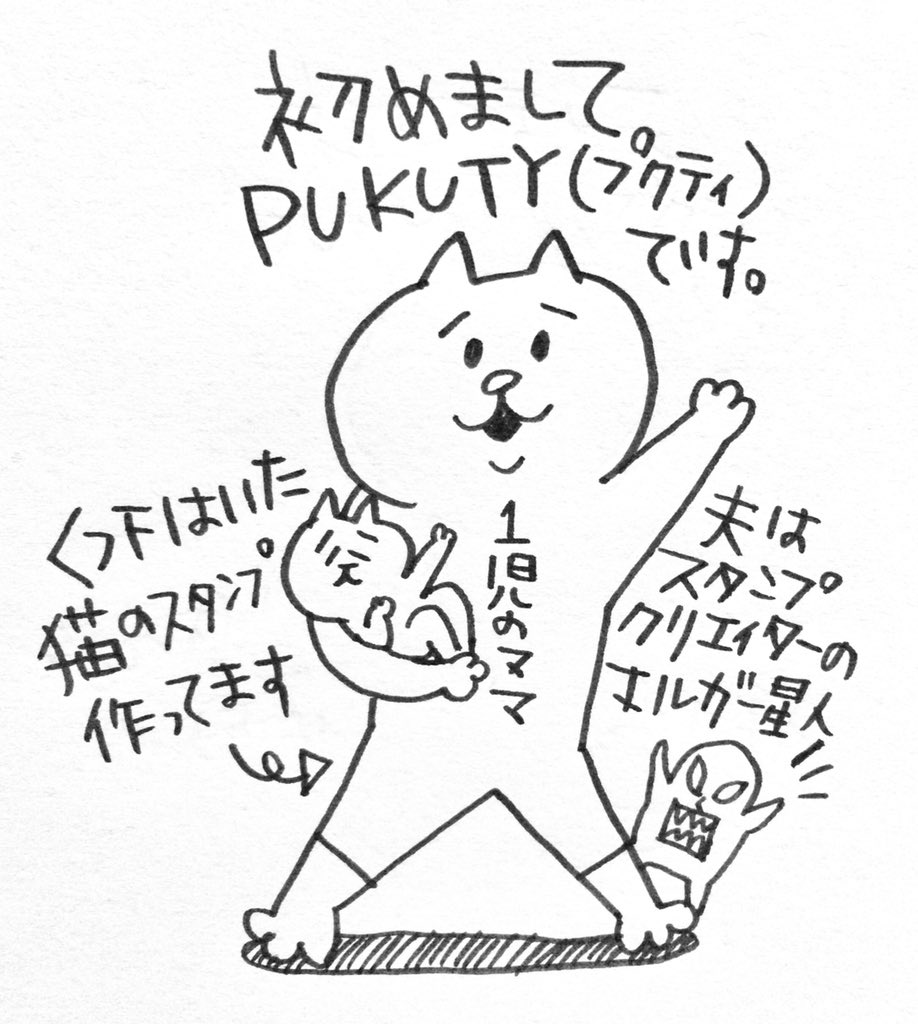 初めまして。
PUKUTY(プクティ)
です。
くつ下はいた
猫のスタンプ
作ってます
1児のママ
夫は
スタンプ
クリエイターの
オルガ星人